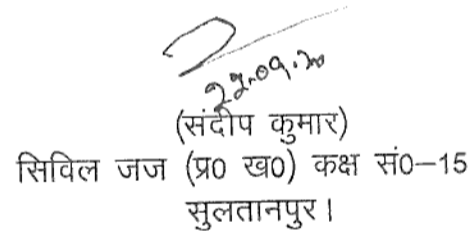 22.09.20
(संदीप कुमार)
सिविल जज (प्र0 ख0) कक्ष सं0–15
सुलतानपुर।